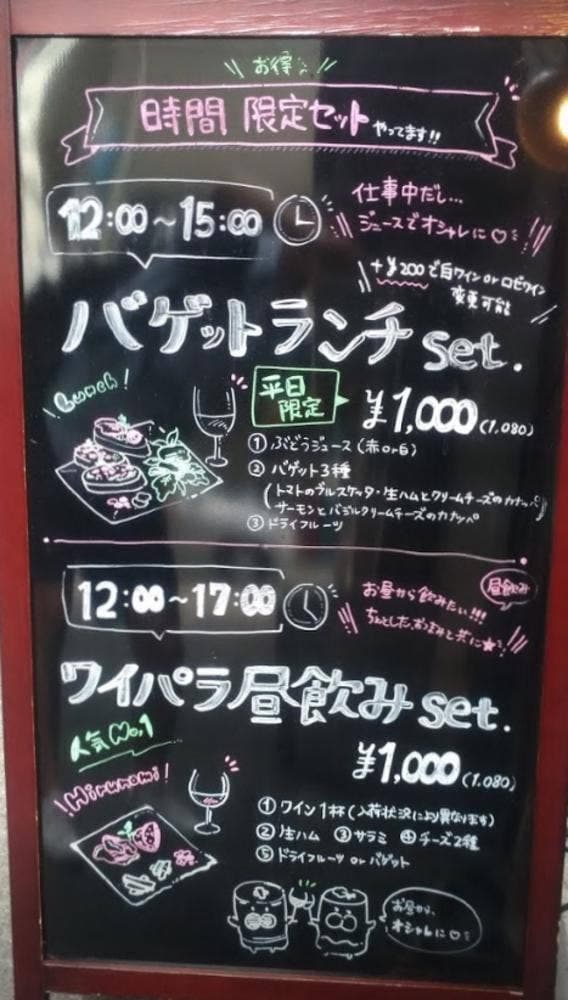 お得
時間 限定セット やってます!!
12:00~15:00
仕事中だし...
ジュースでオシャレに♡
+¥200で白ワインorロゼワイン
変更可能
バゲットランチ set.
Lunch!
平日
限定
¥1,000 (1.080)
① ぶどうジュース (赤or白)
② バゲット3種
(トマトのブルスケッタ・生ハムとクリームチーズのカナッペ
サーモンとバジルクリームチーズのカナッペ
③ ドライフルーツ
12:00~17:00
昼飲み
お昼から飲みたい!!!
ちょっとしたおつまみと共に★
ワイパラ昼飲み set.
人気No.1
¥1,000 (1.080)
Hirunomi!
① ワイン1杯 (入荷状況により異なります)
② 生ハム ③ サラミ ④ チーズ2種
⑤ ドライフルーツ or バゲット
お昼から、
オシャレに♡